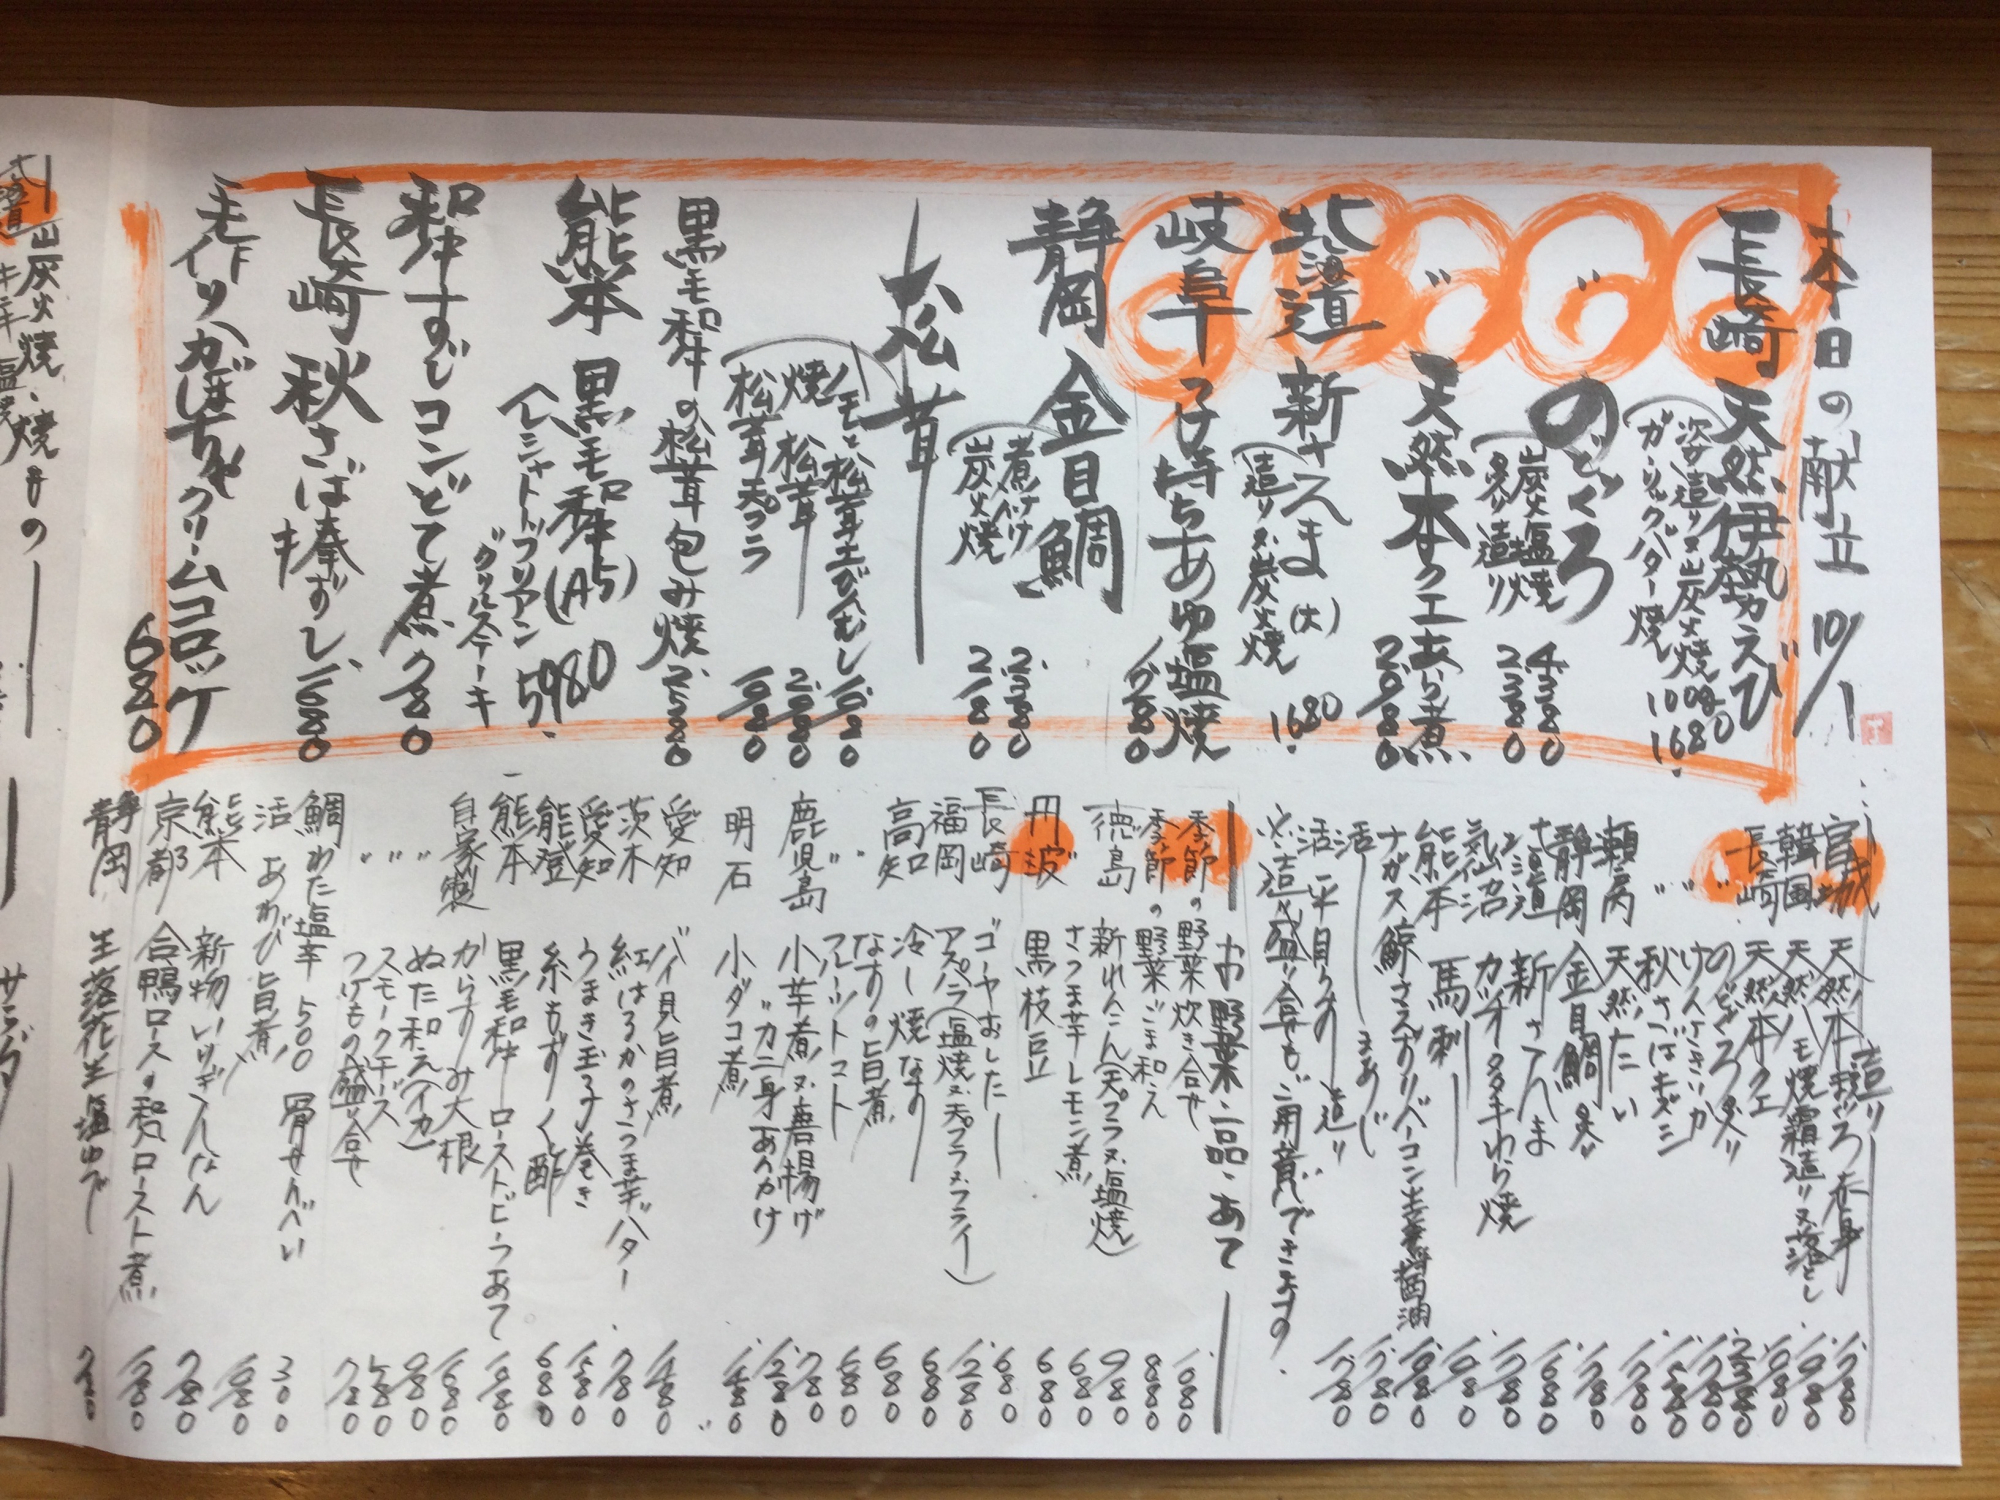 本日の献立 10/1
長崎 天然伊勢えび
姿造り又炭火焼 100g
ガーリックバター焼 1680
〃 のどぐろ
炭火塩焼 4380
炙り造り 2380
〃 天然本クエあら煮 2080
北海道 新さんま(大)
造り又炭火焼 1680
岐阜 子持ちあゆ塩焼
静岡 金目鯛
煮つけ 2380
炭火焼 2180
松茸
松茸土びんむし
焼松茸 2080
松茸天プラ 1080
黒毛和牛の松茸包み焼 2580
熊本 黒毛和牛(A5) 5980
シャトーブリアン
グリルステーキ
和牛すじコンどて煮 780
長崎 秋さば棒ずし 1680
かぼちゃクリームコロッケ
680
造り
宮城 天然本まぐろ赤身 1780
韓国 天然ハモ焼霜造り又落とし 1980
長崎 天然本クエ 1080
〃 のどぐろ炙り 2380
〃 けんさきいか 1780
〃 秋さばキズシ 1580
瀬戸内 天然たい 1780
静岡 金目鯛炙り 1780
北海道 新さんま 1680
気仙沼 カツオタタキわら焼 1780
熊本 馬刺し 1980
ナガス鯨さえずりベーコン生姜醤油 1080
活〆あじ 1780
活平目うす造り 1780
※造り盛り合せもご用意できます。
お野菜・一品・あて
季節の野菜炊き合せ 1080
季節の野菜ごま和え 880
徳島 新れんこん(天プラ又塩焼) 980
さつま芋レモン煮 680
丹波 黒枝豆 680
長崎 ゴーヤおひたし 680
福岡 アスパラ(塩焼又天プラ又フライ) 1280
高知 冷し焼なす 680
なすの旨煮 680
〃 フルーツトマト 680
鹿児島 小芋煮又唐揚げ 780
〃カニ身あんかけ 1280
明石 小ダコ煮 1480
愛知 バイ貝旨煮 1480
茨木 紅はるかのさつま芋バター 780
愛知 うまき玉子巻き 1580
能登 糸もずく酢 680
熊本 黒毛和牛ローストビーフあて 1980
自家製 からすみ大根 1680
〃 ぬた和え(イカ) 980
〃 スモークチーズ 580
〃 つけもの盛り合せ 780
鯛わた塩辛 500 骨せんべい 300
活あわび旨煮 1680
熊本 新物いりぎんなん 780
京都 合鴨ロースの和ロースト煮 1380
静岡 生落花生塩ゆで 780
炭火焼・焼もの
サラダ